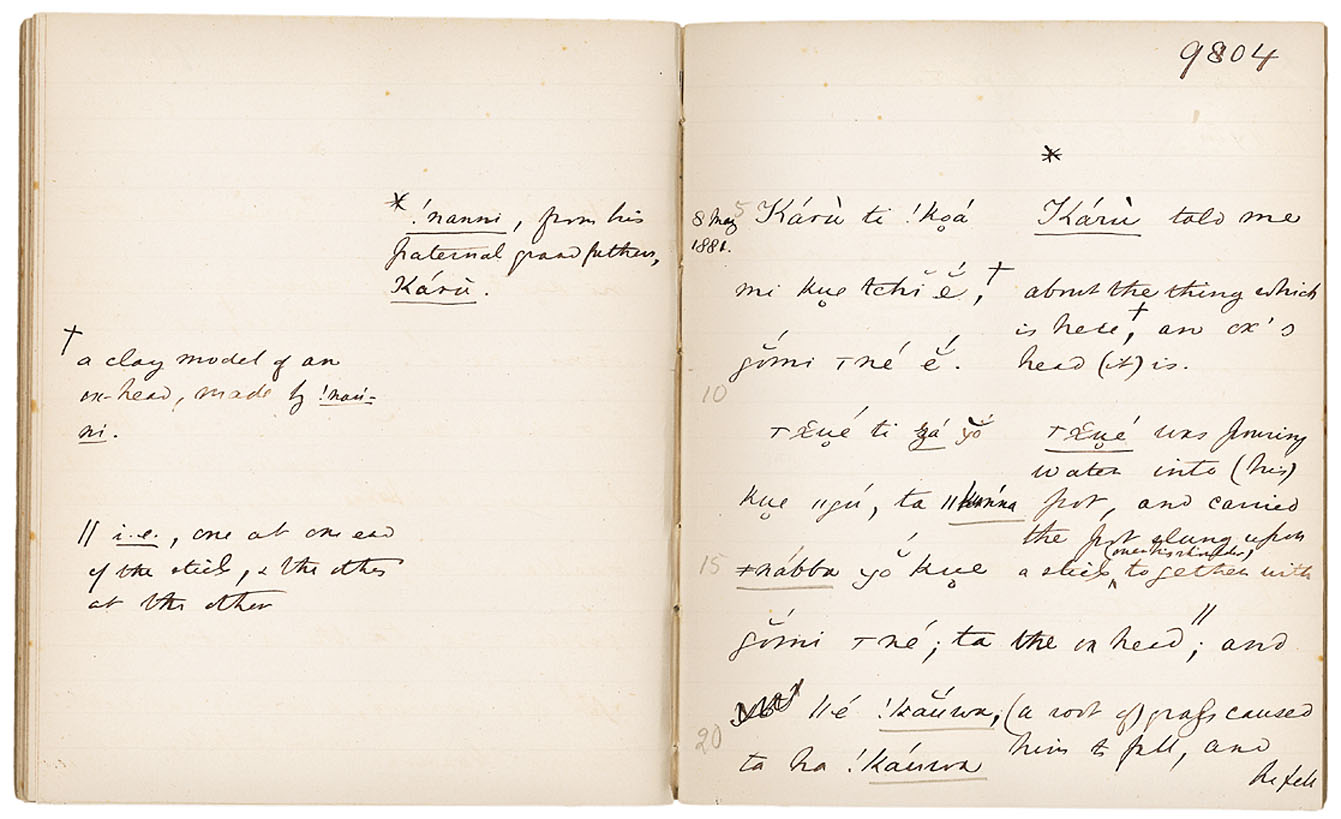 * !nanni, from his
paternal grandfather,
Kárù.
† a clay model of an
ox-head, made by !nan-
ni.
// i.e., one at one end
of the stick, & the other
at the other
9804
*
8 May
1881.
5
Kárù ti !ko̤á
Kárù told me
mi kṳe tchī ĕ́,†
about the thing which
is here,† an ox's
gǔmi ⊤né ĕ́.
head (it) is.
10
⊤χṳé ti gá yŏ́
⊤χṳé was pouring
water into (his)
kṳe ǁgú, ta
pot, and carried
the pot slung upon
(over his shoulder,)
15
ǂnábba yŏ́ kṳe
a stick ‸ together with
gǔ́mi ⊤né; ta
the ox head;// and
ǁé !kăúwa,
(a root of) grass caused
20
him to fall, and
ta ha !kăúwa
he fell